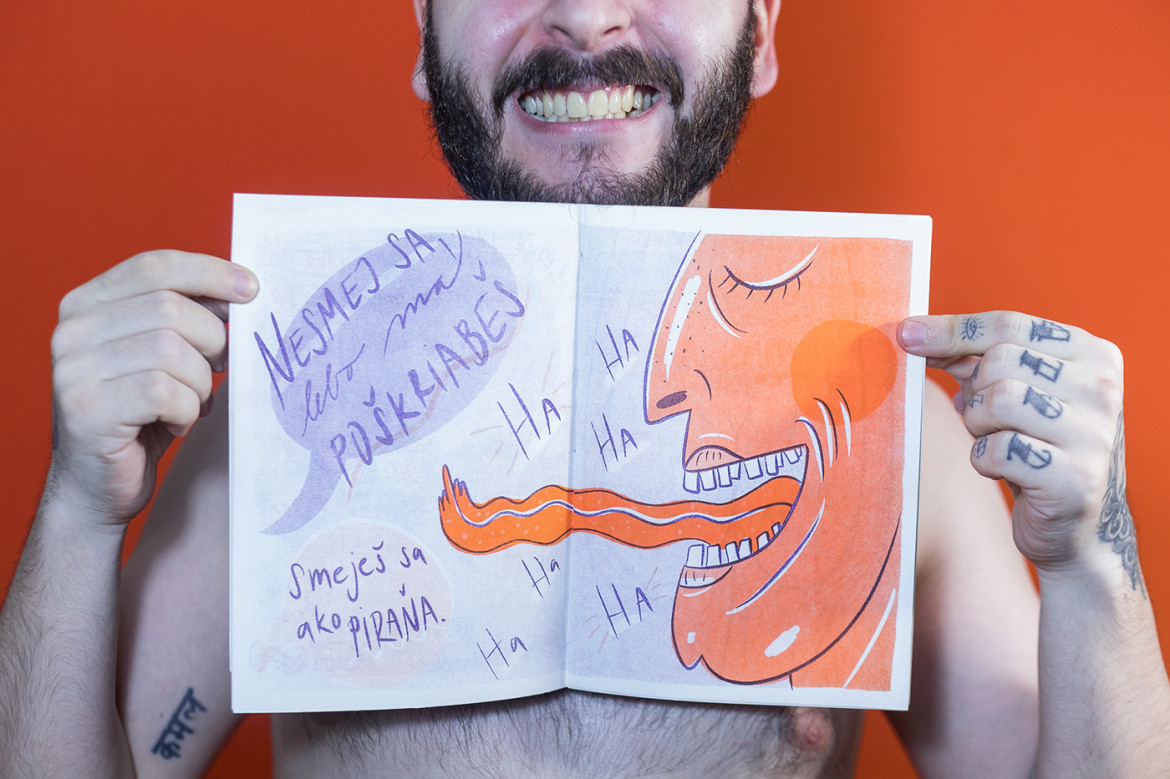 NESMEJ SA,
lebo ma
POŠKRIABEŠ
Smeješ sa
ako PIRAŇA.
Ha
Ha
Ha
HA
HA
HA
कमल